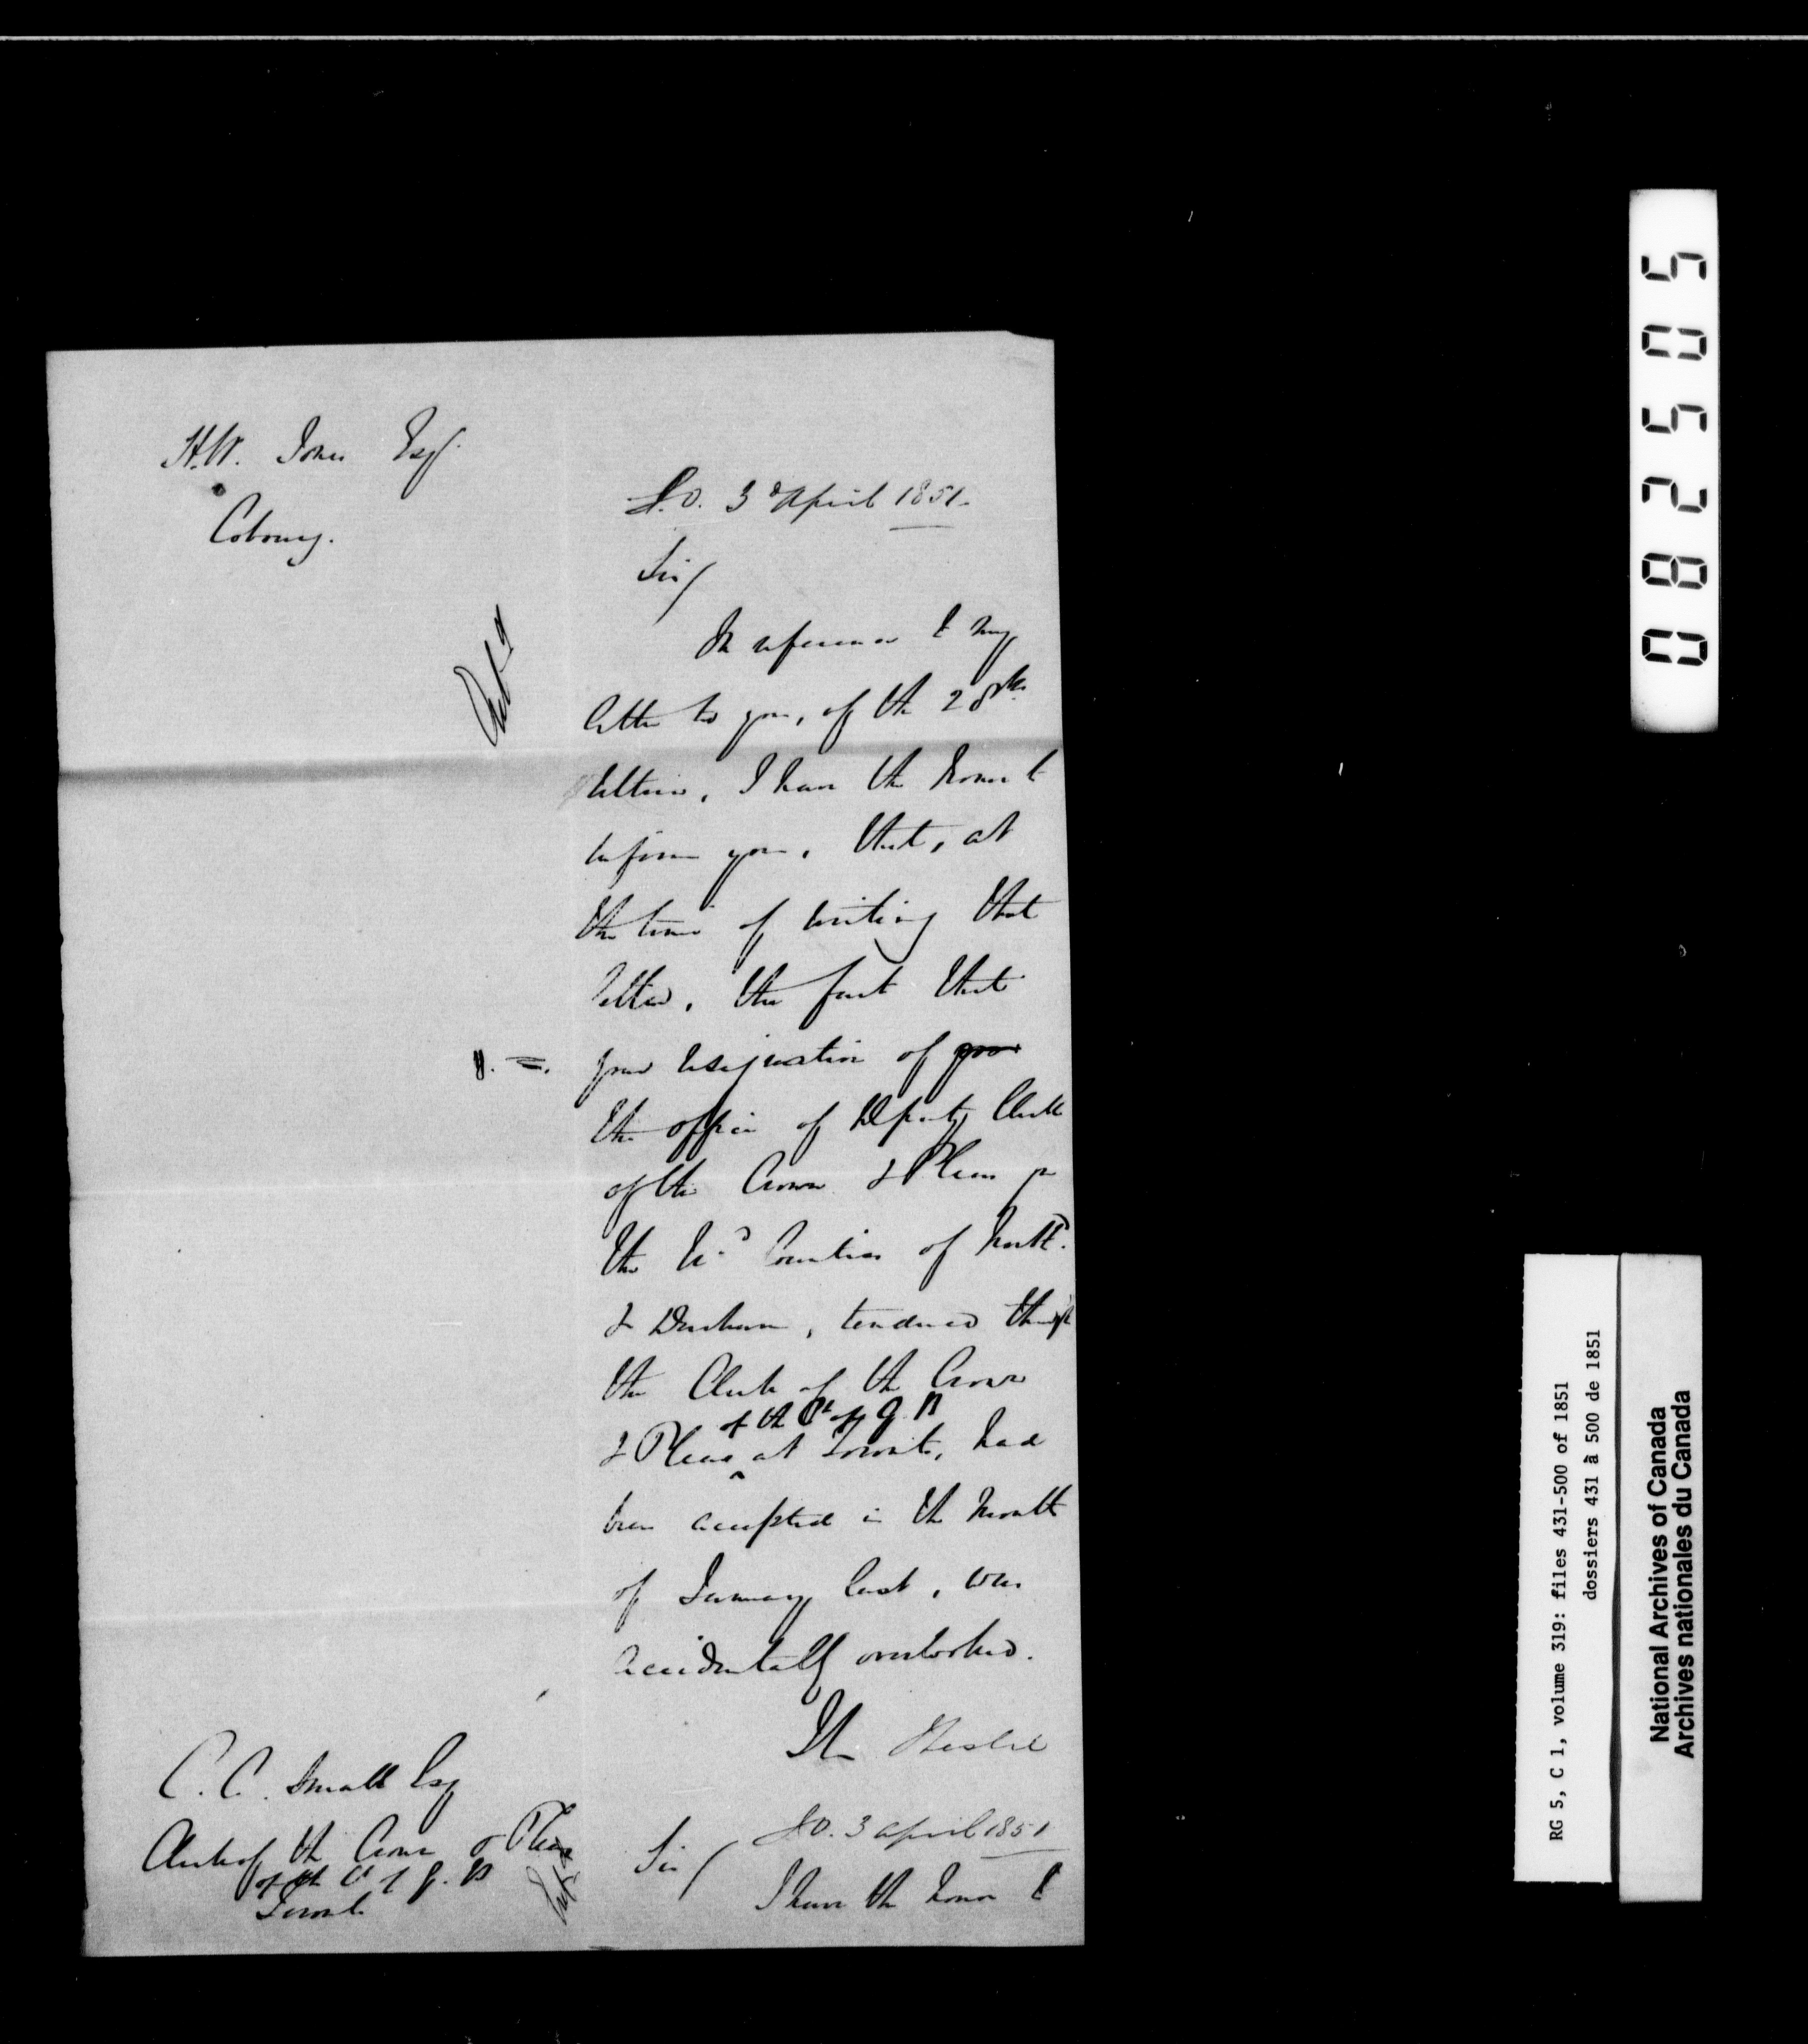 H.W. Jones Esq.
Cobourg.
S.O. 3d April 1851.
Sir/
In reference to my
letter to you, of the 28th
Ultimo, I have the honor to
inform you, that, at
the time of writing that
letter, the fact that
your resignation of your
the office of Deputy Clerk
of the Crown & Pleas for
the Ud Counties of Northd.
& Durham, tendered through
the Clerk of the Crown
of the Ct of Q. B
& Pleas at Toronto, had
been accepted in the Month
of January last, was
accidentally overlooked.
C. C. Small Esq
Clerk of the Crown & Pleas
of the Ct of Q. B
Toronto
S.O. 3 April 1851
Sir/
I have the honor to
082505
RG 5, C 1, volume 319: files 431-500 of 1851
dossiers 431 à 500 de 1851
National Archives of Canada
Archives nationales du Canada